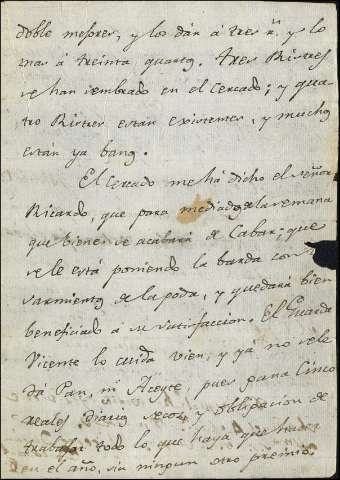 doble mejores, y los dán á tres r.s y lo
mas á treinta quartos. Tres Ristres
se han sembrado en el Cercado; y qua-
tro Ristres están existentes, y muchos
están ya banos.
El Cercado me há dicho el señor
Ricardo, que para mediados de la semana
que biene se acabará de Cabar; que
se le está poniendo la barda con
sarmientos de la poda, y quedará bien
beneficiado a su satisfaccion. El Guarda
Vicente lo cuida vien; y ya no se le
dá Pan, ni Aceyte, pues gana Cinco
reales diarios secos, y obligacion de
trabajar todo lo que haya que hacer
en el año, sin ningun otro premio.